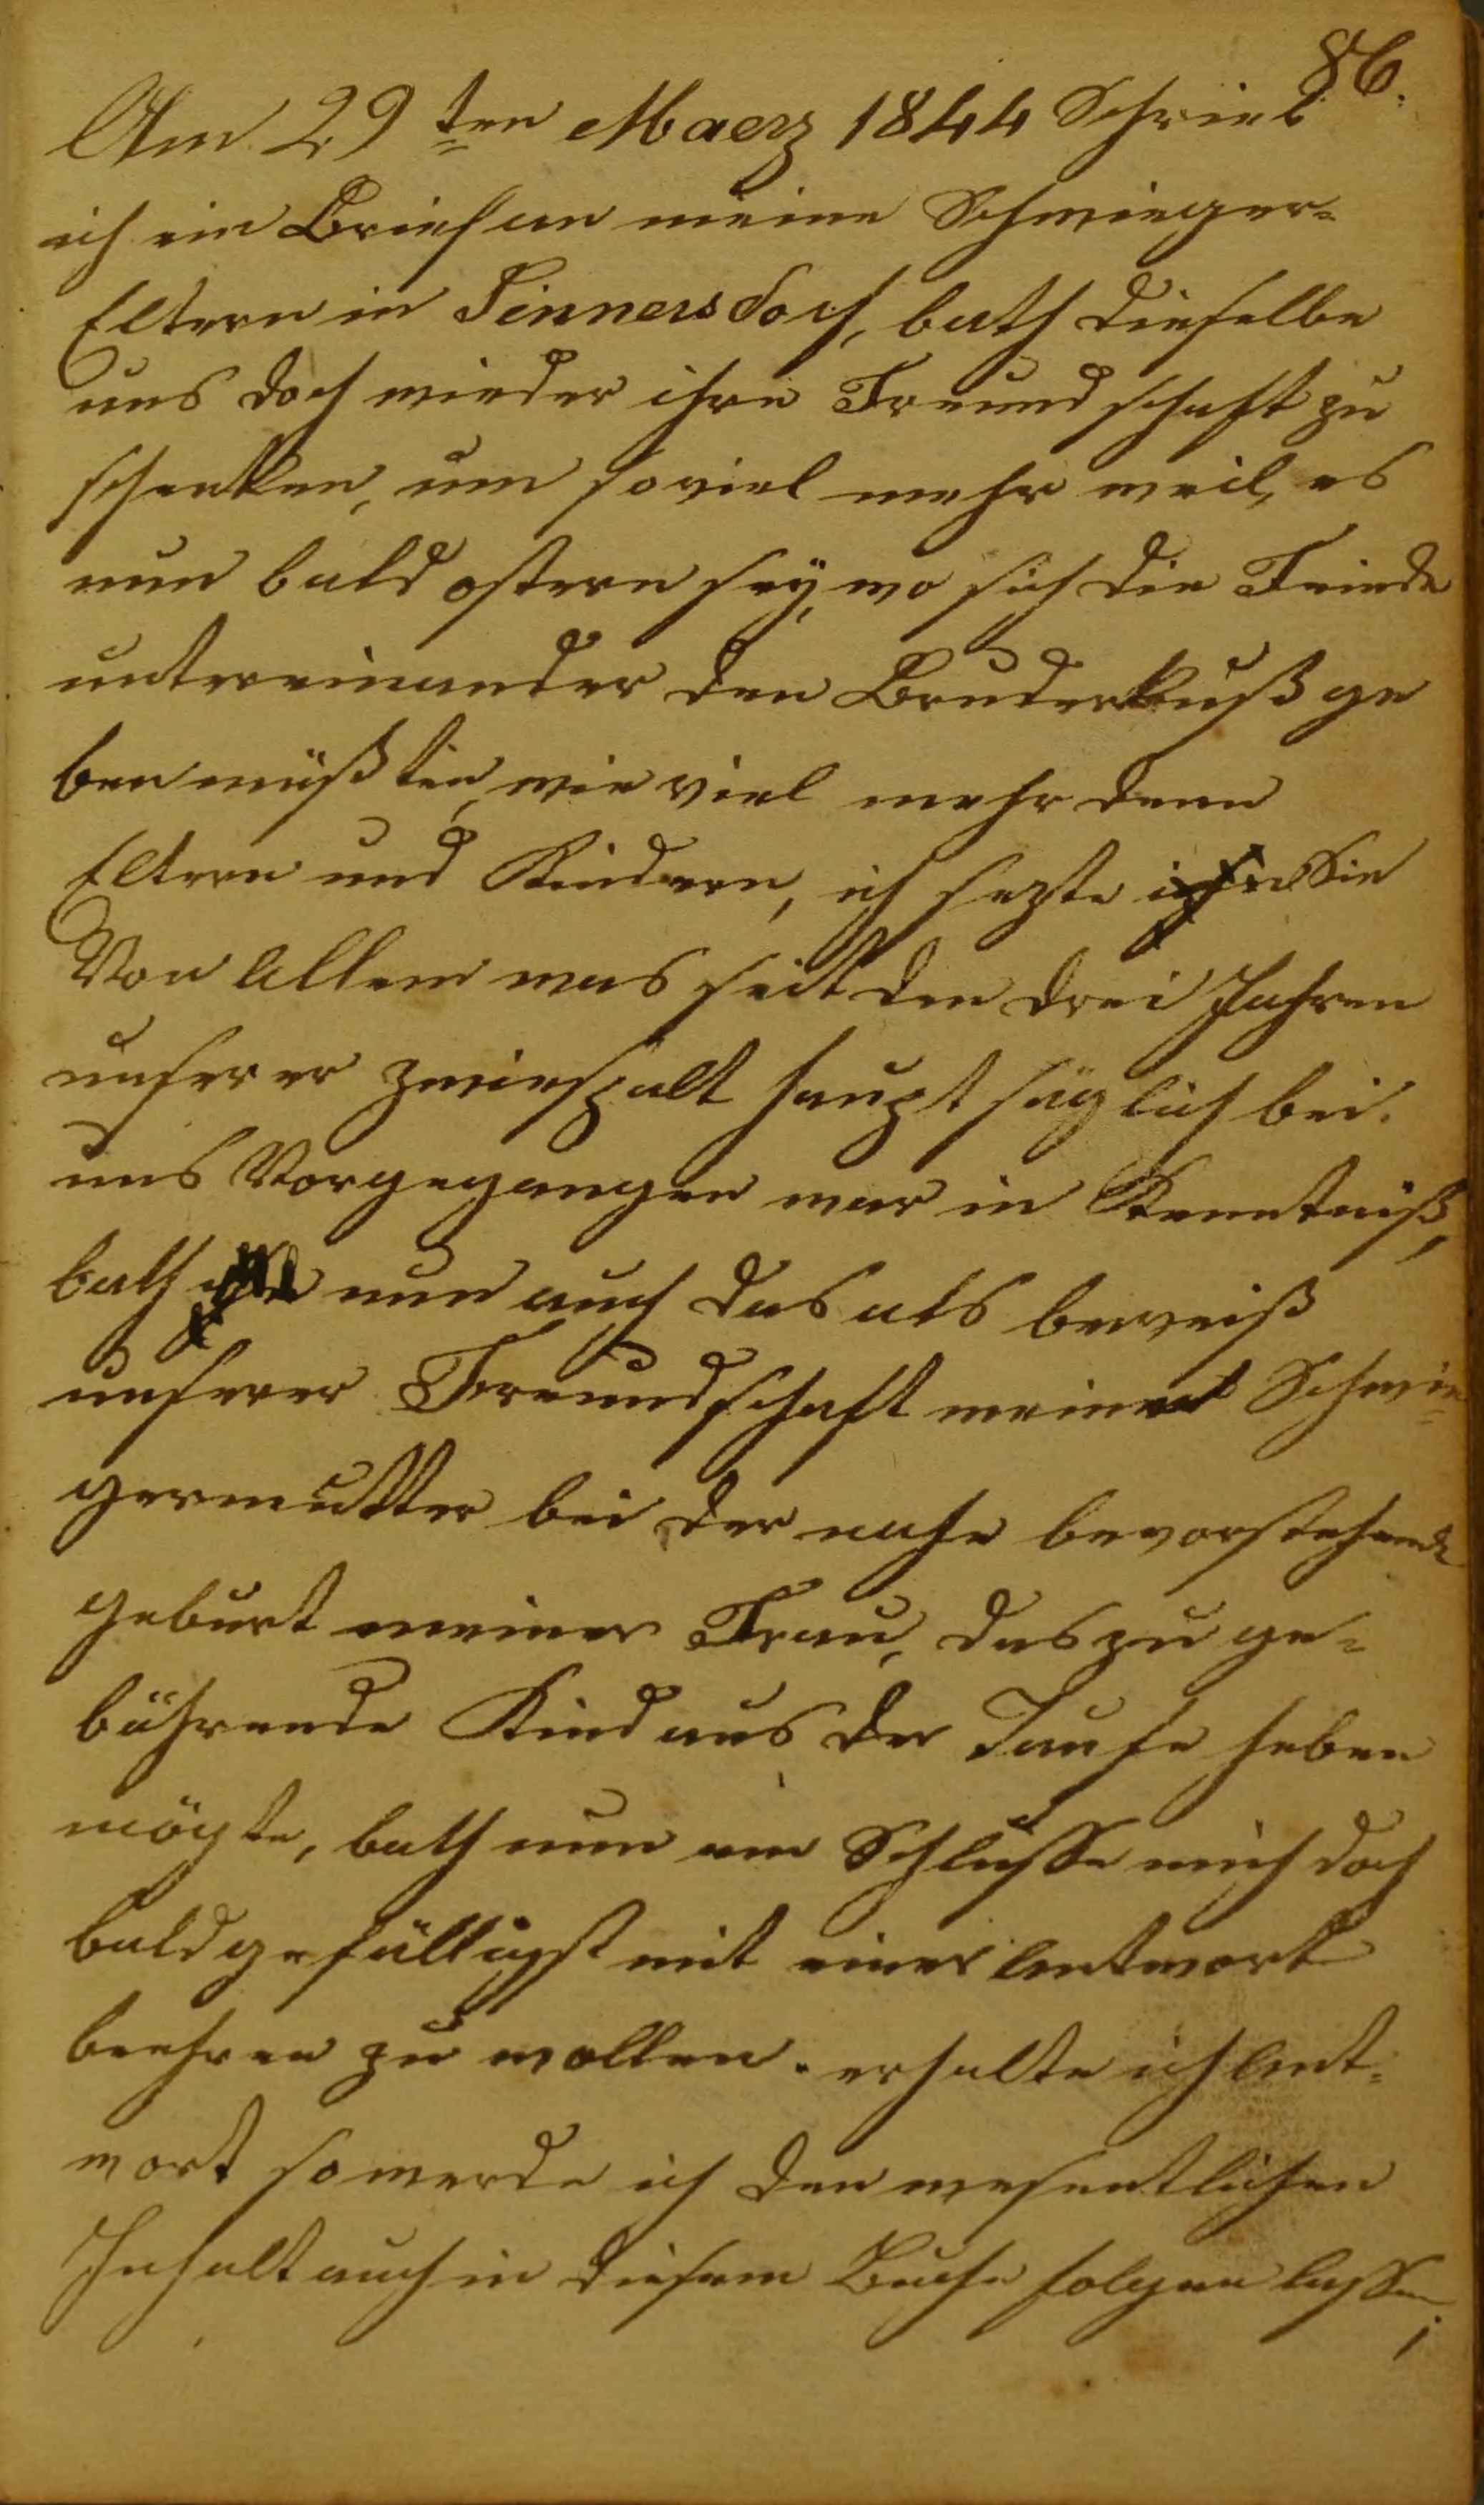 86.
Am 29ten Maerz 1844 Schrieb
ich ein Brief an meine Schwieger-
Eltern in Sinnersdorf, bath dieselbe
uns doch wieder ihre Freundschaft zu
schenken, um so viel mehr weil, es
nun bald ostern seÿ, wo sich die Feinde
untereinander den Bruderkuß ge
ben müßten, wie viel mehr denn
Eltern und Kindern, ich sezte Sie
Von Allem was seit den drei Jahren
unserer zwiespalt haupt säglich bei
uns Vorgegangen war in Kenntniß,
bath nun auch das als beweiß
unserer Freundschaft meine Schwie-
germutter bei der nahe bevorstehende
geburt meiner Frau, das zu ge-
bährende Kind aus der Taufe heben
mögte, bath nun am Schlusse mich doch
bald gefälligst mit einer Antwort
beehren zu wollen. erhalte ich Ant-
wort so werde ich den wesentlichen
Inhalt auch in diesem Buche folgen lassen;